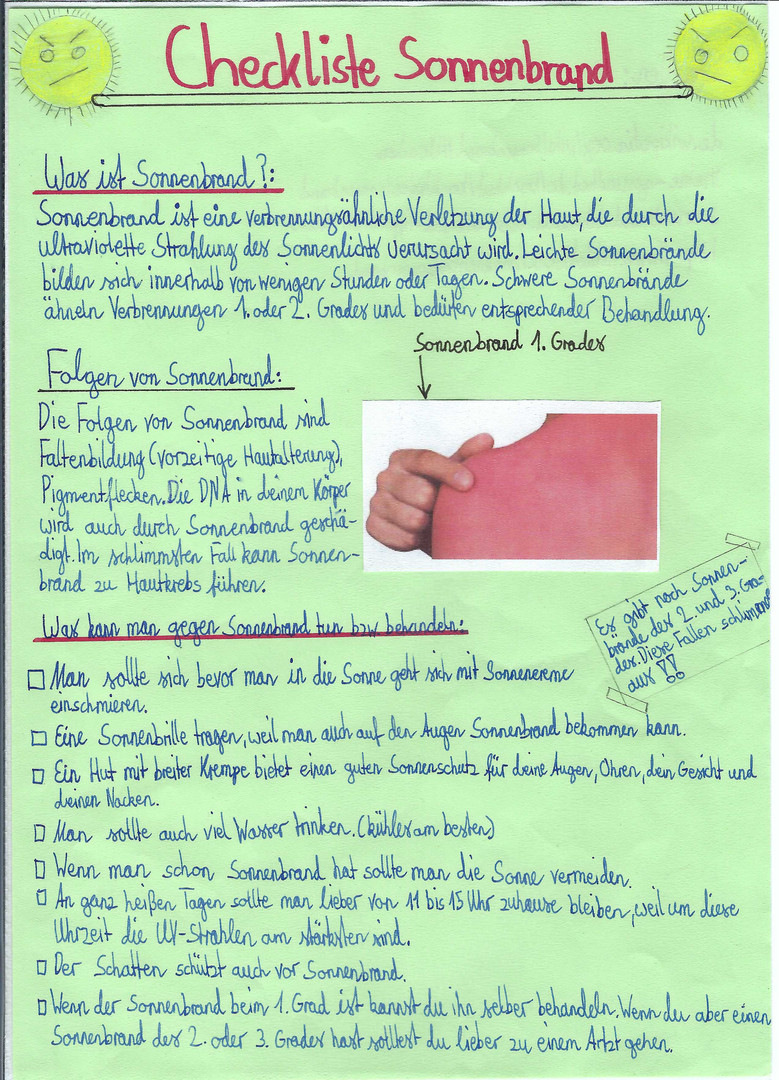 Checkliste Sonnenbrand
Was ist Sonnenbrand?:
Sonnenbrand ist eine verbrennungsähnliche Verletzung der Haut, die durch die
ultraviolette Strahlung des Sonnenlichts verursacht wird. Leichte Sonnenbrände
bilden sich innerhalb von wenigen Stunden oder Tagen. Schwere Sonnenbrände
ähneln Verbrennungen 1. oder 2. Grades und bedürfen entsprechender Behandlung.
Sonnenbrand 1. Grades
Folgen von Sonnenbrand:
Die Folgen von Sonnenbrand sind
Faltenbildung (vorzeitige Hautalterung),
Pigmentflecken. Die DNA in deinem Körper
wird auch durch Sonnenbrand geschä-
digt. Im schlimmsten Fall kann Sonnen-
brand zu Hautkrebs führen.
Es gibt noch Sonnen-
brände des 2. und 3. Gra-
des. Diese Fallen schlimmer
aus!!
Was kann man gegen Sonnenbrand tun bzw behandeln:
Man sollte sich bevor man in die Sonne geht sich mit Sonnencreme
einschmieren.
Eine Sonnenbrille tragen, weil man auch auf den Augen Sonnenbrand bekommen kann.
Ein Hut mit breiter Krempe bietet einen guten Sonnenschutz für deine Augen, Ohren, dein Gesicht und
deinen Nacken.
Man sollte auch viel Wasser trinken. (kühles am besten)
Wenn man schon Sonnenbrand hat sollte man die Sonne vermeiden.
An ganz heißen Tagen sollte man lieber von 11 bis 15 Uhr zuhause bleiben, weil um diese
Uhrzeit die UV-Strahlen am stärksten sind.
Der Schatten schützt auch vor Sonnenbrand.
Wenn der Sonnenbrand beim 1. Grad ist kannst du ihn selber behandeln. Wenn du aber einen
Sonnenbrand des 2. oder 3. Grades hast solltest du lieber zu einem Artzt gehen.